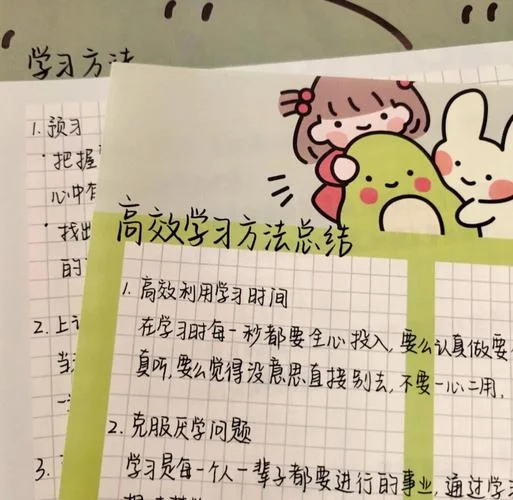 学习方法
1. 预习
·把握
心中有
·找出
的
2. 上
当
3.
高效学习方法总结
1. 高效利用学习时间
在学习时每一秒都要全心投入,要么认真做要
真听,要么觉得没意思直接别去,不要一心二用,
2. 克服厌学问题
学习是每一个人一辈子都要进行的事业,通过学